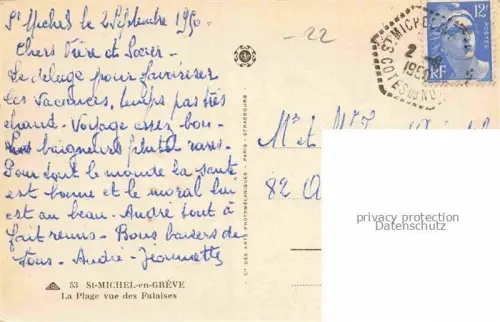 St Michel le 2 Septembre 1950
Chers Frère et Soeur
Le déluge pour favoriser
les vacances, temps pas très
chaud. Voyage assez bon.
Les baigneurs plutôt rares.
Pour tout le monde la santé
est bonne et le moral lui
est au beau. André tout à
fait remis. Bons baisers de
tous. André - Jeannette
53 St-MICHEL-en-GRÈVE
La Plage vue des Falaises
Cie DES ARTS PHOTOMÉCANIQUES - PARIS - STRASBOURG
- 22
St MICHEL
2
1950
COTES DU NORD
12F
POSTES
RF
Mr et Mme
82
privacy protection
Datenschutz